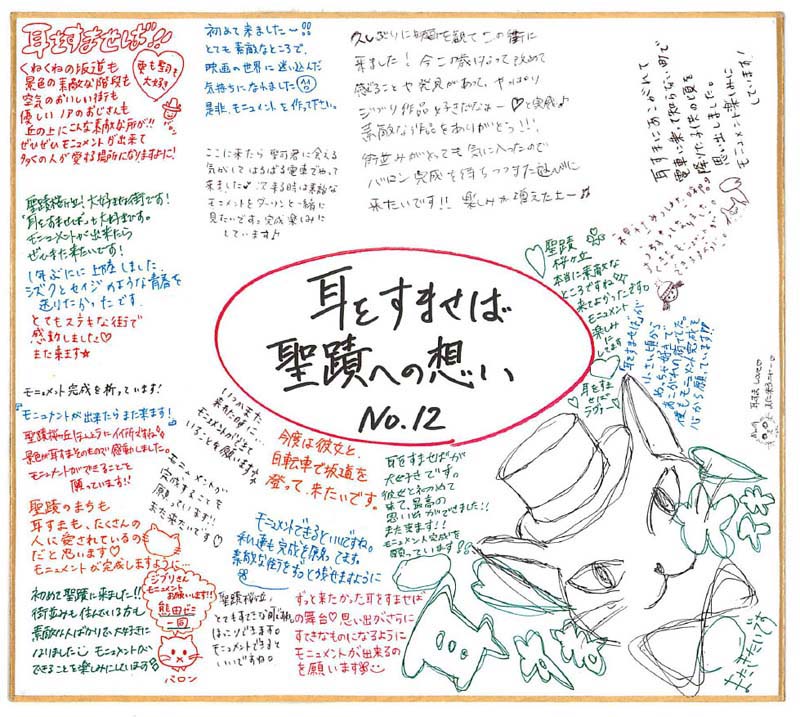 耳をすませば!!
愛も聖司も
大好き
くねくねの坂道も
景色の素敵な階段も
空気のおいしい街も
優しいノアのおじさんも
丘の上にこんな素敵な所が!!
ぜひぜひモニュメントが出来て
多くの人が愛する場所になりますように!
初めて来ました〜!!
とても素敵なところで、
映画の世界に迷い込んだ
気持ちになれました
是非、モニュメントを作って下さい。
久しぶりに映画を観てこの街に
来ました!今この歳になって改めて
感じることや発見があって、やっぱり
ジブリ作品好きだなぁー♡と実感♪
素敵な作品をありがとう!!!
街並みがとっても気に入ったので
バロン完成を待ちつつまた
来たいです!!楽しみが増えたー♪
耳すまにあこがれて
電車に来って知らない町で
降りた子供の頃を
思い出しました。
モニュメント楽しみに
しています!
ここに来たら聖司君に会える
気がしてはるばる電車でやって
来ました♪って来る時は素敵な
モニュメントをダーリンと一緒に
見たいです。完成楽しみに
しています♪
聖蹟桜ヶ丘!大好きな街です!
「耳をすませば」も大好きです。
モニュメントが出来たら
ぜひまた来たいです!
1年ぶりに上陸しました
シズクとセイジのような青春を
送りたかったです
とてもステキな街で
感動しました♡
また来ます☆
聖蹟
桜ヶ丘
本当に素敵な
ところですね
来てよかったです。
モニュメント
楽しみ
にします
耳をす
ませば
ラブ♡
「耳をすませば」が
小さい頃から
めっちゃ好きで
あこがれの街でした。
僕もモニュメント完成を
心から願っています!!
耳をすませば
聖蹟への想い
No.12
モニュメント完成を祈っています!
モニュメントが出来たらまた来ます!
聖蹟桜ヶ丘ほんとうにイイ所ですね。
景色が耳すまそのもので感動しました。
モニュメントができることを
願っています!!
いつかまた
モニュメントができて
いることを願います
今度は彼女と、
自転車で坂道を
登って、来たいです。
モニュメントが
完成することを
願っています!!
また来たいです♡
耳をすませばが
大好きです。
彼女と初めて
来て、最高の
思い出ができました!!
また来ます!!
モニュメント完成を
願っています!
聖蹟のまちも
耳すまも、たくさんの
人に愛されているの
だと思います♡
モニュメントが完成しますように…
モニュメントできるといいですね。
私達も完成を願ってます。
ジブリさん
モニュメント
お願いします!!
一同
バロン
初めて聖蹟に来ました!!
街並みも住んでいる方も
素敵な人ばかりで大好きに
なりました モニュメントが
できることを楽しみにしています
聖蹟桜ヶ丘、
モニュメントできると
いいですね。
ずっと来たかった耳をすませば
の舞台♡思い出がさらに
すてきなものになるように
モニュメントが出来るの
を願います
またきたいです